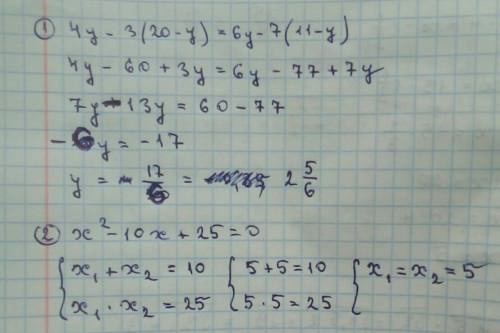 ① 4y - 3(20-y) = 6y - 7(11-y)
4y - 60 + 3y = 6y - 77 + 7y
7y - 13y = 60 - 77
- 6y = -17
y = 17/6 = 2 5/6
② x² - 10x + 25 = 0
{ x₁ + x₂ = 10 { 5 + 5 = 10 { x₁ = x₂ = 5
x₁ · x₂ = 25 5 · 5 = 25